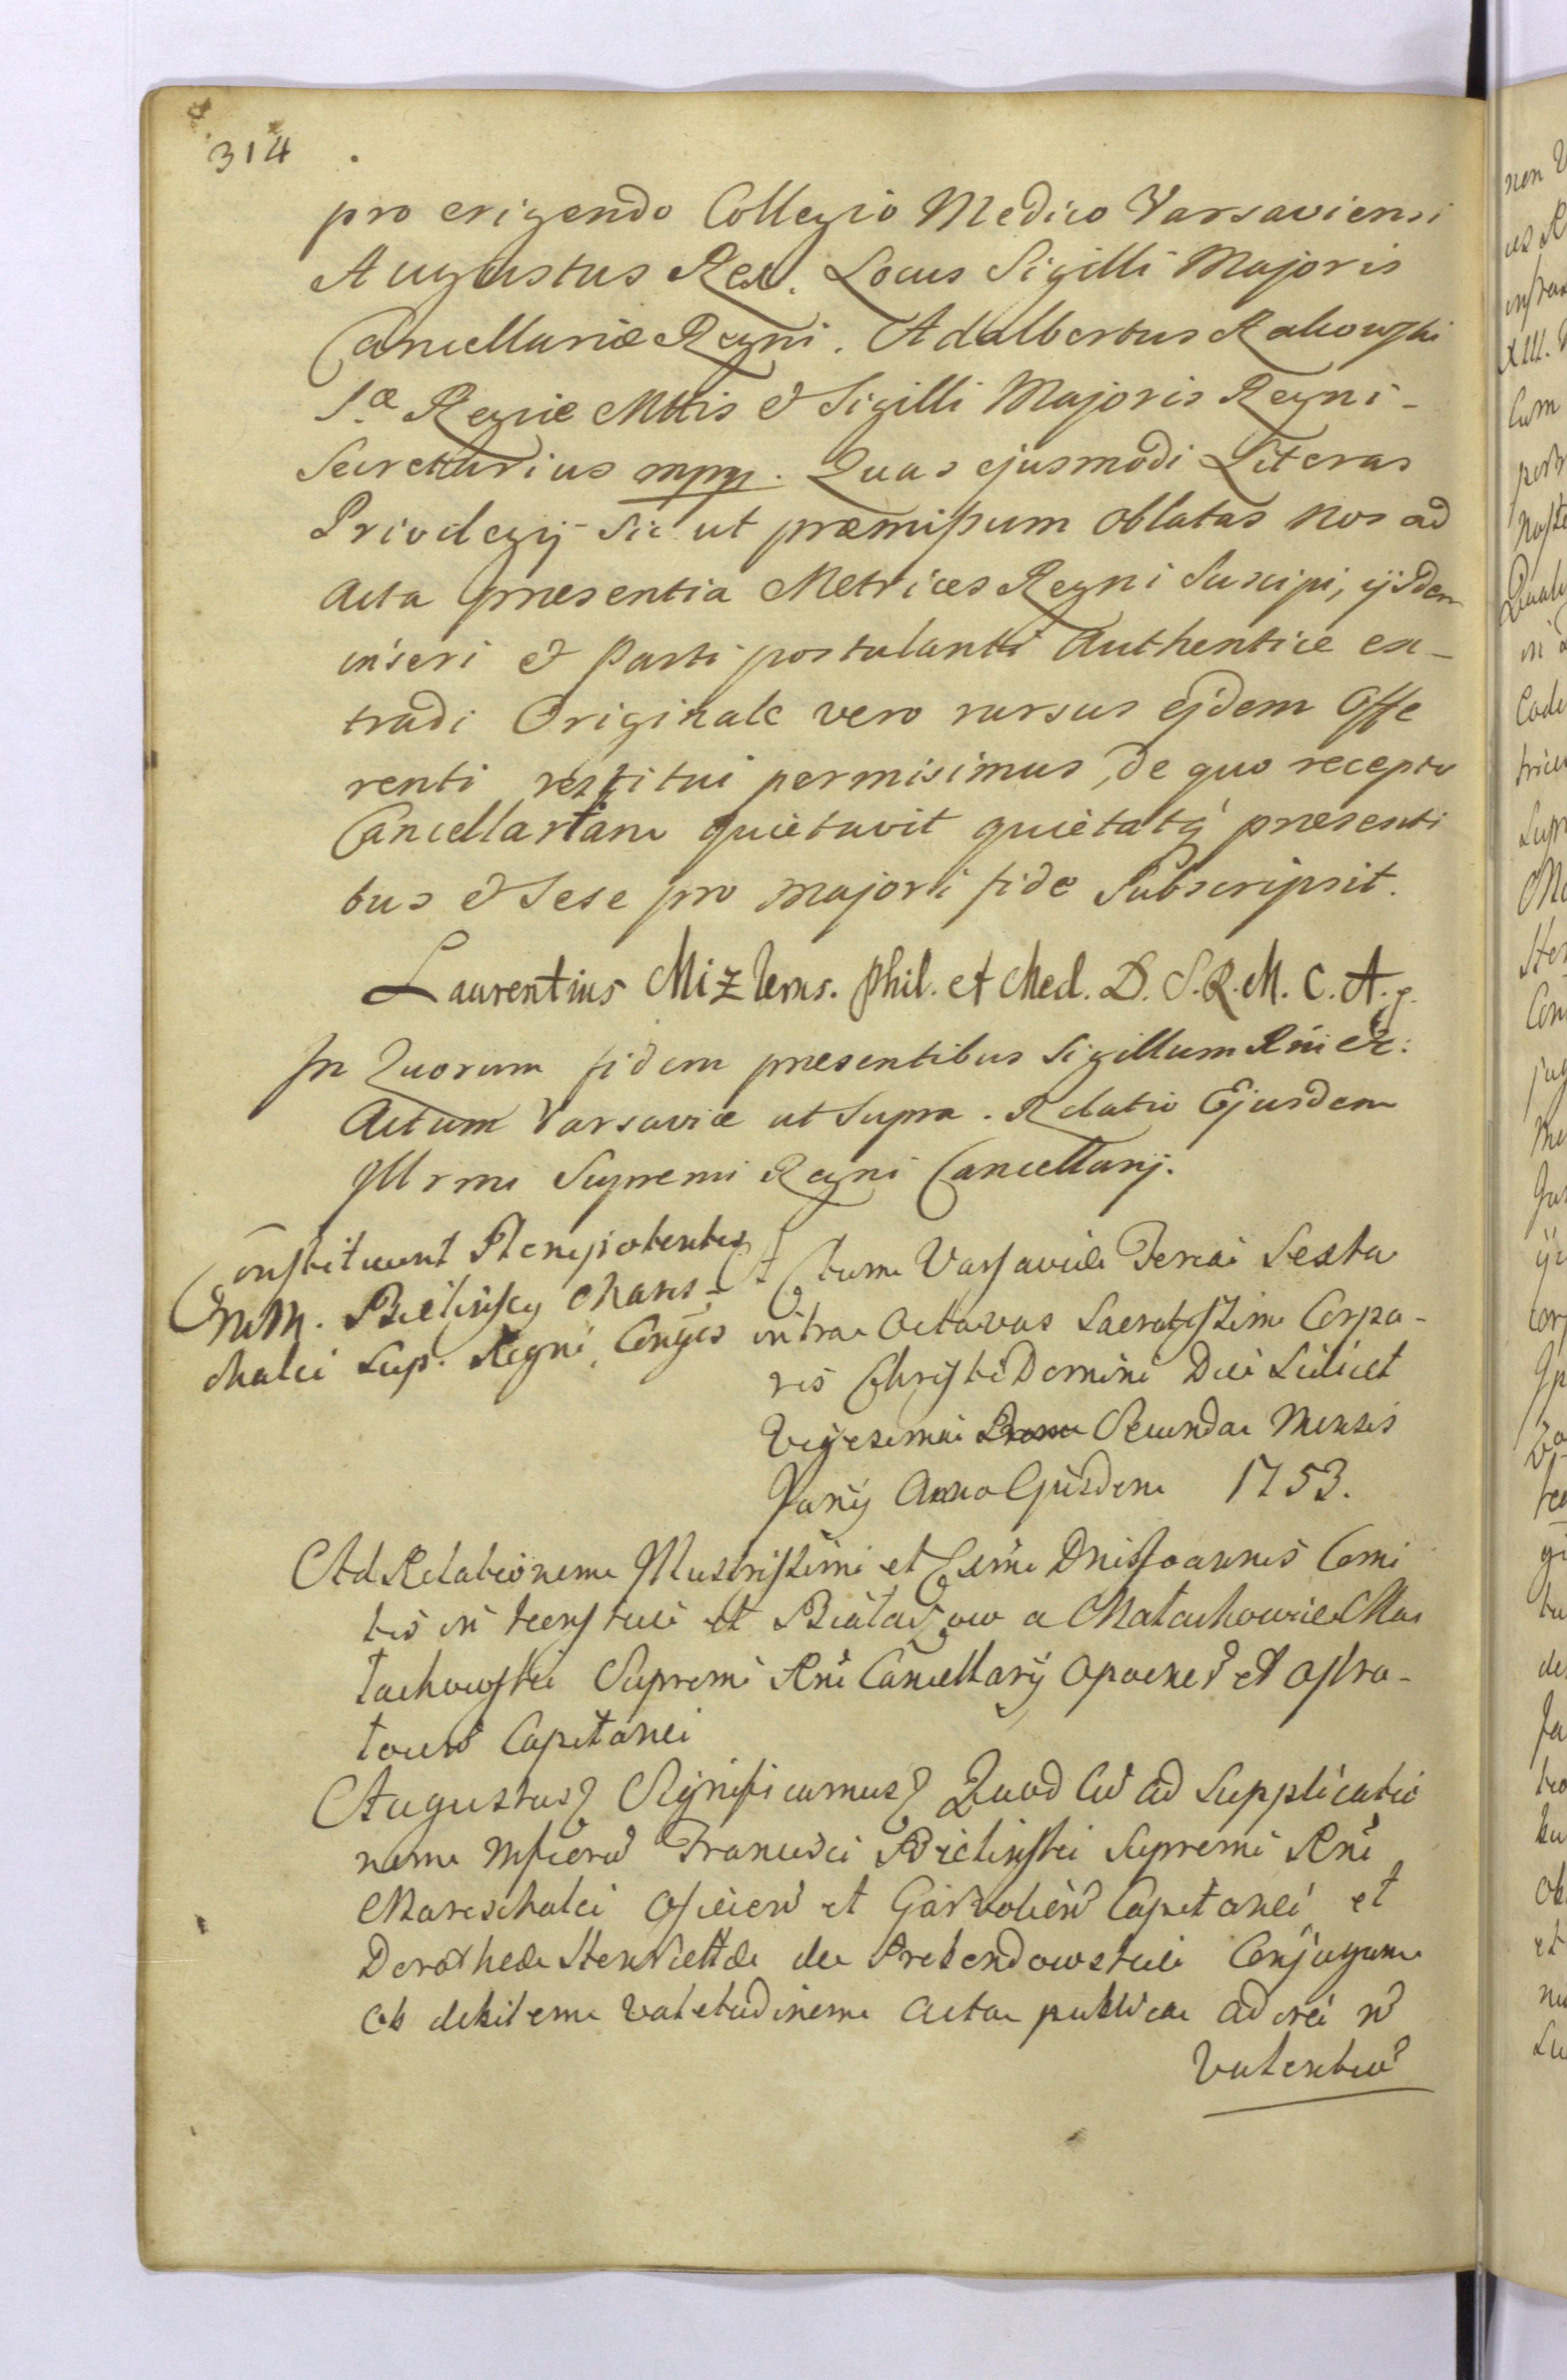 314
pro erigendo Collegio Medico Varsaviensi
Augustus Rex. Locus Sigilli Majoris
Cancellariæ Regni. Adalbertus Rakowski
S.æ Regiæ Mttis & Sigilli Majoris Regni -
Secretarius mpp. Quas ejusmodi Literas
Privilegij sic ut præmissum oblatas nos ad
Acta præsentia Metrices Regni Suscipi, ijsdem
inseri & Parti postulanti Authentice ex-
tradi Originale vero rursus ejdem Offe
renti restitui permisimus, de quo recepto
Cancellariam quietavit quietatq́ præsenti
bus & Sese pro majori fide Subscripsit.
Laurentius Mizlerus. Phil. et Med. D. S. R. M. C. A.
In Quorum fidem præsentibus Sigillum Rni &c:
Actum Varsaviæ ut Supra. Relatio Ejusdem
Illrmi Supremi Regni Cancellarij.
Constituunt Plenipotentes
MM. Bielinscy Mares-
chalci Sup. Regni Conjges
Actum Varsaviæ Feria Sexta
intra Octavas Sacratissimi Corpo-
ris Christi Domini Die Scilicet
Vigesima Secunda Mensis
Junij Anno Ejusdem 1753.
Ad Relationem Illustrissimi et Dni Joannis Comi
tis in et Białaczow a Małachowice Ma
łachowski Supremi Rni Cancellarij Opocneñ et Ostro-
Capitanei
Augustus Significamus Quod Cũ ad Supplicatio
nem Francisci Bielinski Supremi Rni
Mareschalci et Garvolieñ Capitanei et
Dorotheæ Henriettæ de Prebendowskie Conjugum
ob debilem valetudinem Acta publica adire ñ
valentiũ